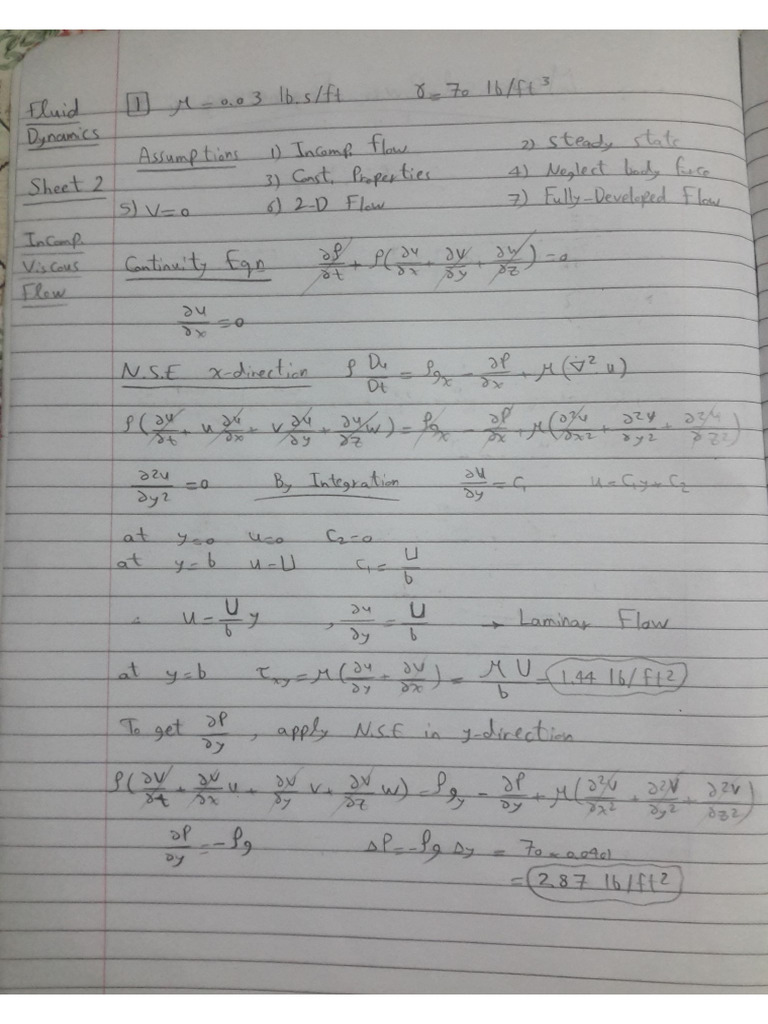 Fluid
Dynamics
Sheet 2
Incomp.
Viscous
Flow
1 μ = 0.03 lb.s/ft γ = 70 lb/ft³
Assumptions 1) Incomp. flow 2) steady state
3) Const. Properties 4) Neglect body force
5) V=0 6) 2-D Flow 7) Fully-Developed Flow
Continuity Eqn ∂ρ/∂t + ρ(∂u/∂x + ∂v/∂y + ∂w/∂z) = 0
∂u/∂x = 0
N.S.E x-direction ρ Du/Dt = ρgx - ∂P/∂x + μ(∇² u)
ρ(∂u/∂t + u ∂u/∂x + v ∂u/∂y + ∂u/∂z w) = ρgx - ∂P/∂x + μ(∂²u/∂x² + ∂²u/∂y² + ∂²u/∂z²)
∂²u/∂y² = 0 By Integration ∂u/∂y = C₁ u = C₁y + C₂
at y=0 u=0 C₂=0
at y=b u=U C₁ = U/b
∴ u = U/b y , ∂u/∂y = U/b → Laminar Flow
at y=b τxy = μ(∂u/∂y + ∂v/∂x) = μU/b = 1.44 lb/ft²
To get ∂P/∂y , apply N.S.E in y-direction
ρ(∂v/∂t + ∂v/∂x u + ∂v/∂y v + ∂v/∂z w) = ρgy - ∂P/∂y + μ(∂²v/∂x² + ∂²v/∂y² + ∂²v/∂z²)
∂P/∂y = -ρg ΔP = -ρg Δy =
= 2.87 lb/ft²